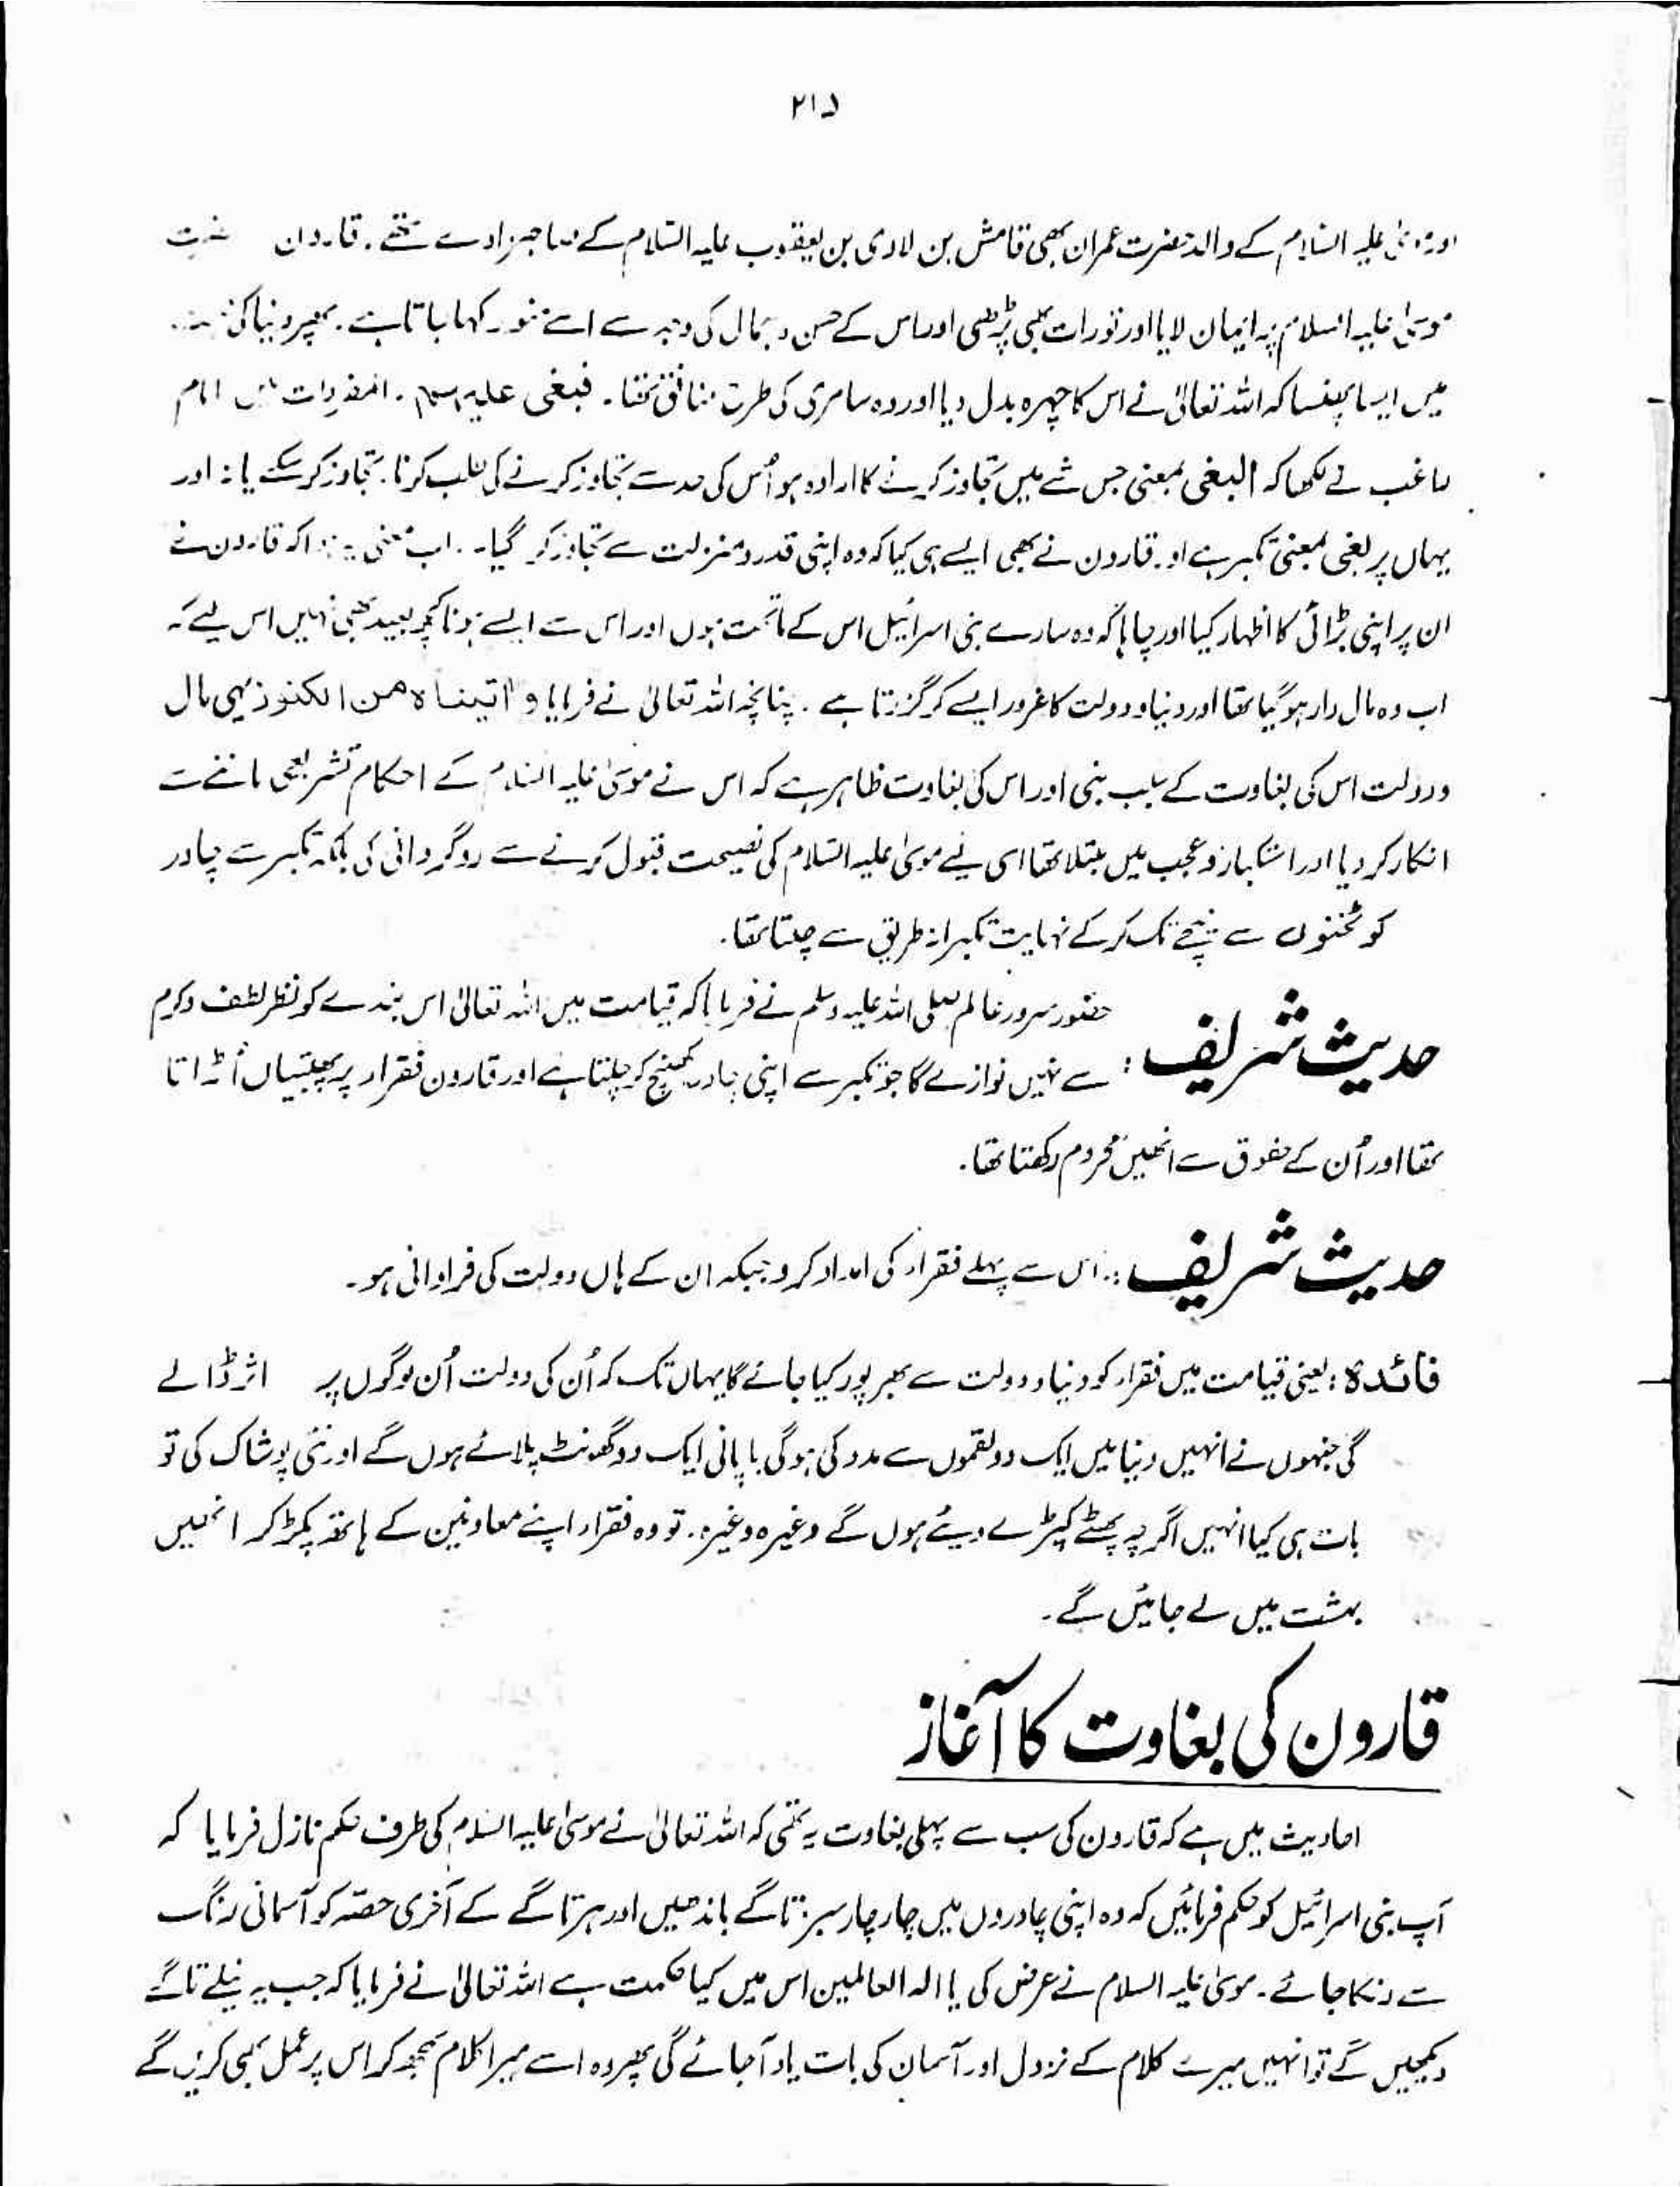 ۲۱۵
اور موسیٰ علیہ السلام کے والد حضرت عمران بھی قامش بن لاوی بن یعقوب علیہ السلام کے صاحبزادے تھے۔ قارون حضرت
موسیٰ علیہ السلام پر ایمان لایا اور تورات بھی پڑھی اور اس کے حسن و جمال کی وجہ سے اسے منور کہا جاتا ہے۔ پھر دنیا کی
میں ایسا پھنسا کہ اللہ تعالیٰ نے اس کا چہرہ بدل دیا اور وہ سامری کی طرح منافق تھا۔ فبغی علیہم۔ المفردات میں امام
راغب نے لکھا کہ البغی بمعنی جس شے میں تجاوز کرنے کا ارادہ ہو اُس کی حد سے تجاوز کرنے کی طلب کرنا۔ تجاوز کرسکے یا نہ اور
یہاں پر بغی بمعنی تکبر ہے اور قارون نے بھی ایسے ہی کیا کہ وہ اپنی قدر و منزلت سے تجاوز کر گیا۔ اب معنی یہ ہوا کہ قارون نے
ان پر اپنی بڑائی کا اظہار کیا اور چاہا کہ وہ سارے بنی اسرائیل اس کے ماتحت ہوں اور اس سے ایسے ہونا کچھ بعید بھی نہیں اس لیے کہ
اب وہ مال دار ہو گیا تھا اور دنیا و دولت کا غرور ایسے کر گزرتا ہے۔ چنانچہ اللہ تعالیٰ نے فرمایا و اٰتیناہ من الکنوز یہی مال
و دولت اس کی بغاوت کے سبب بنی اور اس کی بغاوت ظاہر ہے کہ اس نے موسیٰ علیہ السلام کے احکام تشریعی ماننے سے
انکار کر دیا اور استکبار و عجب میں مبتلا تھا اسی لیے موسیٰ علیہ السلام کی نصیحت قبول کرنے سے روگردانی کی بلکہ تکبر سے چادر
کو ٹخنوں سے نیچے تک کر کے نہایت تکبرانہ طریق سے چلتا تھا۔
حدیث شریف : حضور سرور عالم صلی اللہ علیہ وسلم نے فرمایا کہ قیامت میں اللہ تعالیٰ اس بندے کو نظر لطف و کرم
سے نہیں نوازے گا جو تکبر سے اپنی چادر کھینچ کر چلتا ہے اور قارون فقراء پر پھبتیاں اُڑاتا
تھا اور اُن کے حقوق سے انھیں محروم رکھتا تھا۔
حدیث شریف : اس سے پہلے فقراء کی امداد کرو جبکہ ان کے ہاں دولت کی فراوانی ہو۔
فائدہ : یعنی قیامت میں فقراء کو دنیا و دولت سے بھرپور کیا جائے گا یہاں تک کہ اُن کی دولت اُن لوگوں پر اثر ڈالے
گی جنہوں نے انہیں دنیا میں ایک دو لقموں سے مدد کی ہو گی یا پانی ایک دو گھونٹ پلائے ہوں گے اور نئی پوشاک کی تو
بات ہی کیا انہیں اگرچہ پھٹے کپڑے دیئے ہوں گے وغیرہ وغیرہ۔ تو وہ فقراء اپنے معاونین کے ہاتھ پکڑ کر انھیں
بہشت میں لے جائیں گے۔
قارون کی بغاوت کا آغاز
احادیث میں ہے کہ قارون کی سب سے پہلی بغاوت یہ تھی کہ اللہ تعالیٰ نے موسیٰ علیہ السلام کی طرف حکم نازل فرمایا کہ
آپ بنی اسرائیل کو حکم فرمائیں کہ وہ اپنی چادروں میں چار چار سبز تاگے باندھیں اور ہر تاگے کے آخری حصّہ کو آسمانی رنگ
سے رنگا جائے۔ موسیٰ علیہ السلام نے عرض کی یا الہ العالمین اس میں کیا حکمت ہے اللہ تعالیٰ نے فرمایا کہ جب یہ نیلے تاگے
دیکھیں گے تو انہیں میرے کلام کے نزول اور آسمان کی بات یاد آجائے گی پھر وہ اسے میرا کلام سمجھ کر اس پر عمل بھی کریں گے